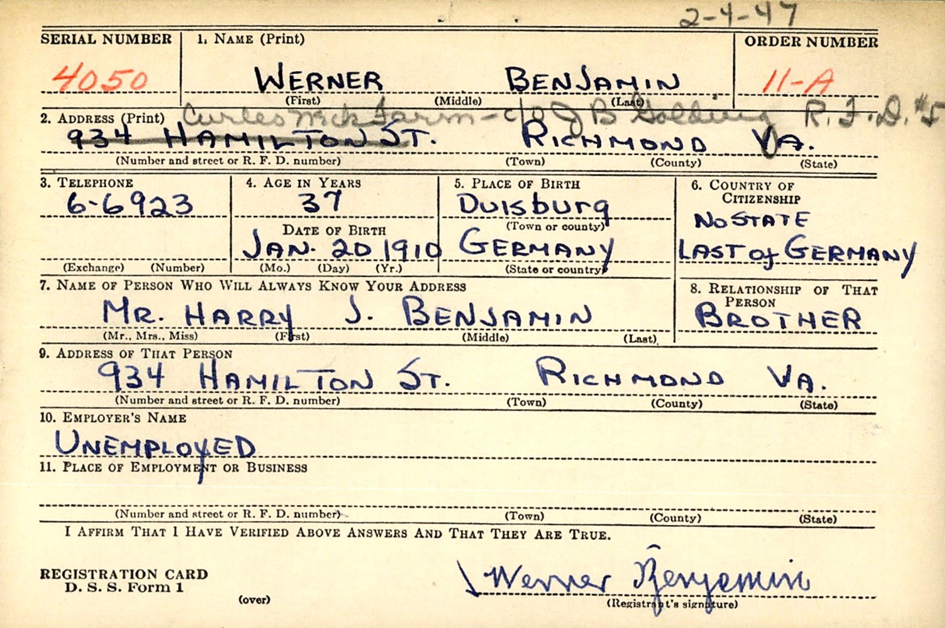 2-4-47
SERIAL NUMBER 1. NAME (Print) ORDER NUMBER
4050 WERNER BENJAMIN 11-A
(First) (Middle) (Last)
Curles Neck Farm - c/o J B Golding R.F.D. #5
2. ADDRESS (Print)
934 HAMILTON ST. RICHMOND VA.
(Number and street or R. F. D. number) (Town) (County) (State)
3. TELEPHONE 4. AGE IN YEARS 5. PLACE OF BIRTH 6. COUNTRY OF CITIZENSHIP
6-6923 37 Duisburg NO STATE
DATE OF BIRTH (Town or county)
JAN. 20 1910 GERMANY LAST of GERMANY
(Exchange) (Number) (Mo.) (Day) (Yr.) (State or country)
7. NAME OF PERSON WHO WILL ALWAYS KNOW YOUR ADDRESS 8. RELATIONSHIP OF THAT PERSON
MR. HARRY J. BENJAMIN BROTHER
(Mr., Mrs., Miss) (First) (Middle) (Last)
9. ADDRESS OF THAT PERSON
934 HAMILTON ST. RICHMOND VA.
(Number and street or R. F. D. number) (Town) (County) (State)
10. EMPLOYER'S NAME
UNEMPLOYED
11. PLACE OF EMPLOYMENT OR BUSINESS
(Number and street or R. F. D. number) (Town) (County) (State)
I AFFIRM THAT I HAVE VERIFIED ABOVE ANSWERS AND THAT THEY ARE TRUE.
REGISTRATION CARD
D. S. S. Form 1
(over)
Werner Benjamin
(Registrant's signature)